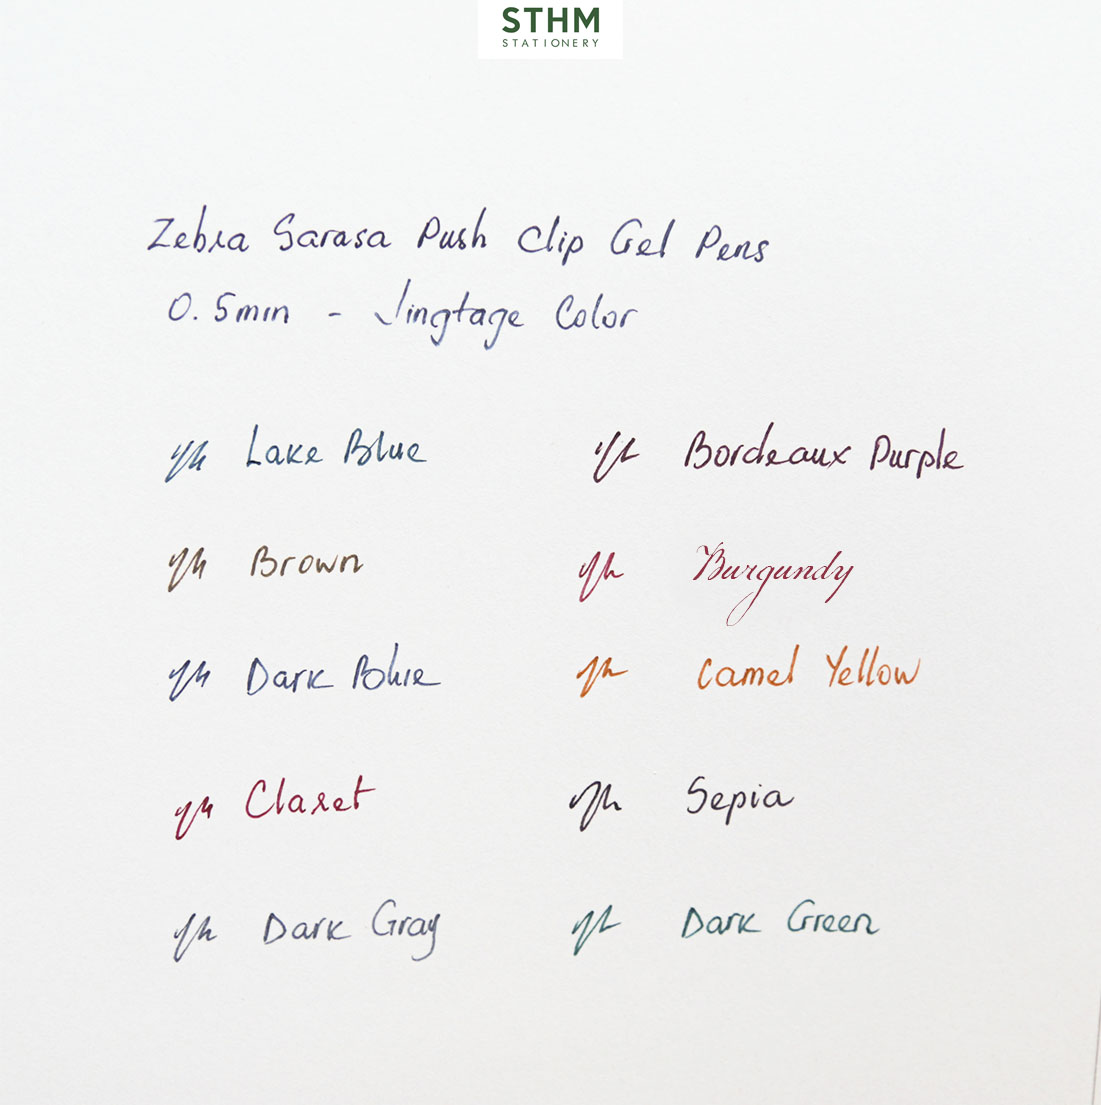 STHM
STATIONERY
Zebra Sarasa Push Clip Gel Pens
0.5mm - Jingtage Color
Lake Blue
Bordeaux Purple
Brown
Burgundy
Dark Blue
Camel Yellow
Claret
Sepia
Dark Gray
Dark Green